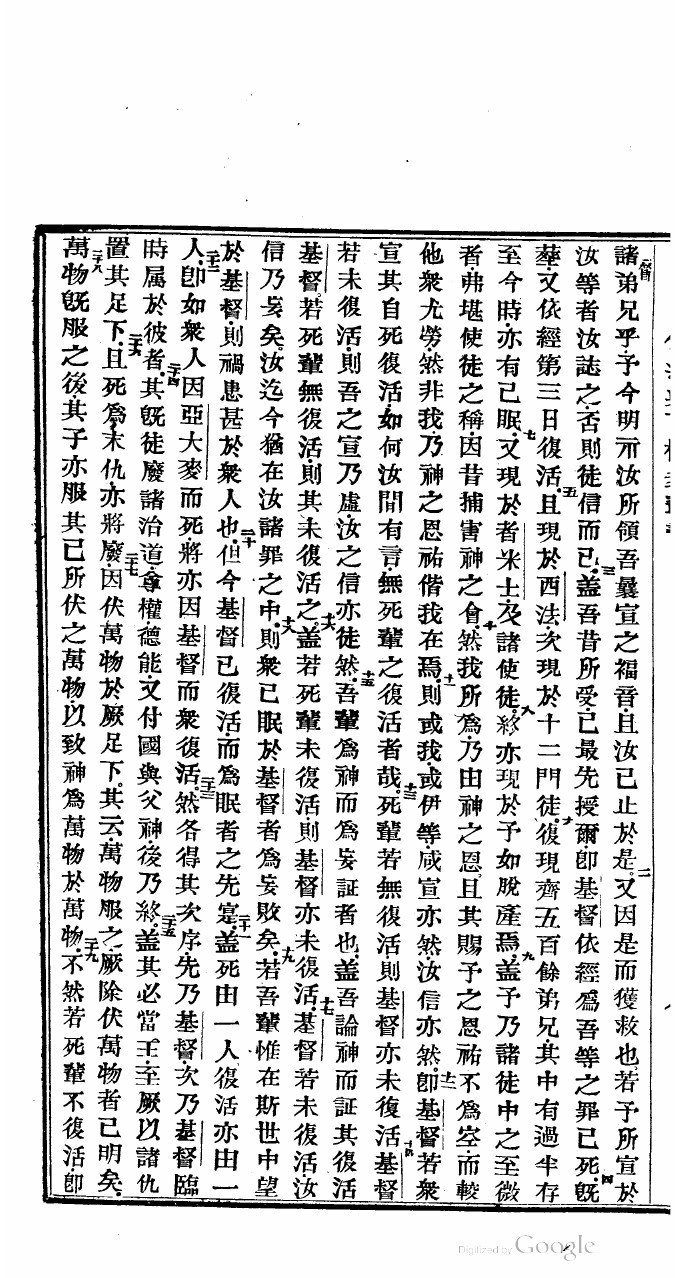 諸弟兄乎予今明示汝所領吾曩宣之福音且汝已止於是二又因是而獲救也若予所宣於
汝等者汝誌之否則徒信而已三盖吾昔所受已最先授爾即基督依經爲吾等之罪已死四既
葬又依經第三日復活五且現於西法次現於十二門徒六復現齊五百餘弟兄其中有過半存
至今時亦有已眠七又現於者米士及諸使徒八終亦現於予如脫產焉九盖予乃諸徒中之至微
者弗堪使徒之稱因昔捕害神之會十然我所爲乃由神之恩且其賜予之恩祐不爲空而較
他衆尤勞然非我乃神之恩祐偕我在焉十一則或我或伊等咸宣亦然汝信亦然十二即基督若衆
宣其自死復活如何汝間有言無死輩之復活者哉十三死輩若無復活則基督亦未復活十四基督
若未復活則吾之宣乃虛汝之信亦徒然十五吾輩爲神而爲妄証者也盖吾論神而証其復活
基督若死輩無復活則其未復活之十六盖若死輩未復活則基督亦未復活十七基督若未復活汝
信乃妄矣汝迄今猶在汝諸罪之中十八則衆已眠於基督者爲妄敗矣十九若吾輩惟在斯世中望
於基督則禍患甚於衆人也二十但今基督已復活而爲眠者之先寔二十一盖死由一人復活亦由一
人二十二即如衆人因亞大麥而死將亦因基督而衆復活二十三然各得其次序先乃基督次乃基督臨
時属於彼者二十四其既徒廢諸治道尊權德能又付國與父神後乃終二十五盖其必當王至厥以諸仇
置其足下二十六且死爲末仇亦將廢二十七因伏萬物於厥足下其云萬物服之厥除伏萬物者已明矣
二十八萬物既服之後其子亦服其已所伏之萬物以致神爲萬物於萬物二十九不然若死輩不復活即
Digitized by Google